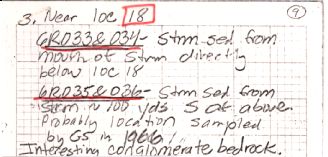 9
3. Near loc 18
GRD33&034- Stm sed from
mouth of Stm directly
below loc 18
GRD35&036- Stm sed from
stream ~ 100 yds S of above.
Probably location sampled
by GS in 1966.
Interesting conglomerate bedrock.